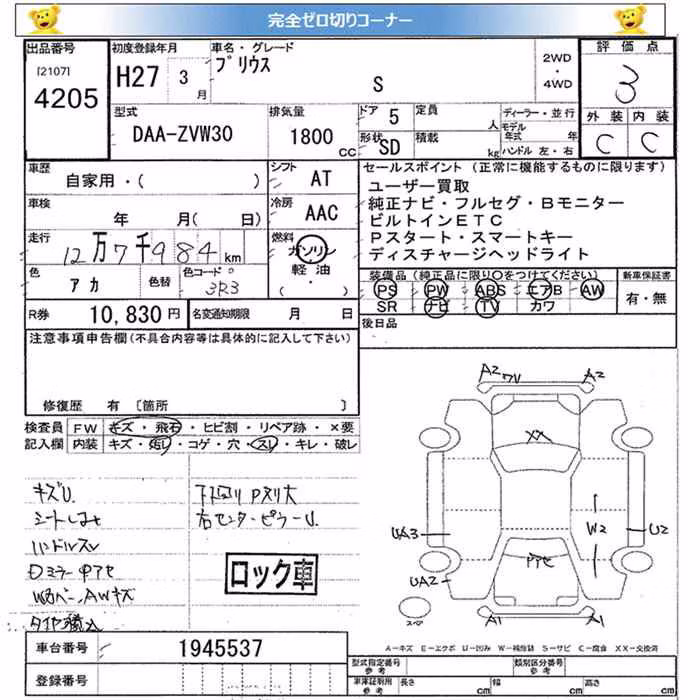 完全ゼロ切りコーナー
出品番号
[2107]
4205
初度登録年月
H27 3 月
車名・グレード
プリウス
S
2WD
・
4WD
評価点
3
外装 内装
C C
型式
DAA-ZVW30
排気量
1800 CC
ドア 5
定員 人
形状 SD
積載 kg
ディーラー・並行
モデル年式 年
ハンドル 左・右
車歴
自家用・( )
シフト AT
車検
年 月( 日)
冷房 AAC
走行
12万7千984 km
燃料
ガソリン
軽油
( ・ )
色
アカ
色替
色コード
3R3
R券 10,830 円
名変通知期限 月 日
セールスポイント (正常に機能するものに限ります)
ユーザー買取
純正ナビ・フルセグ・Bモニター
ビルトインETC
Pスタート・スマートキー
ディスチャージヘッドライト
装備品(純正品に限り○をつけてください)
PS PW ABS エアB AW
SR ナビ TV カワ
新車保証書
有・無
後日品
注意事項申告欄(不具合内容等は具体的に記入して下さい)
修復歴 有 〔箇所 〕
検査員 FW キズ・飛石・ヒビ割・リペア跡・×要
記入欄 内装 キズ・・コゲ・穴・スレ・キレ・破レ
キズU.
ハンドルスレ
下回り Pスリ大
右センターピラーU.
ロック車
A2 ワレ A2
XX
UA3
UA2
W2
U2
A1 A1
スペア
A-キズ E-エクボ U-凹み W-補修跡 S-サビ C-腐食 XX-交換済
車台番号 1945537
登録番号
型式指定番号
参考
類別区分番号
参考
車庫証明用
参考
長さ cm 幅 cm 高さ cm